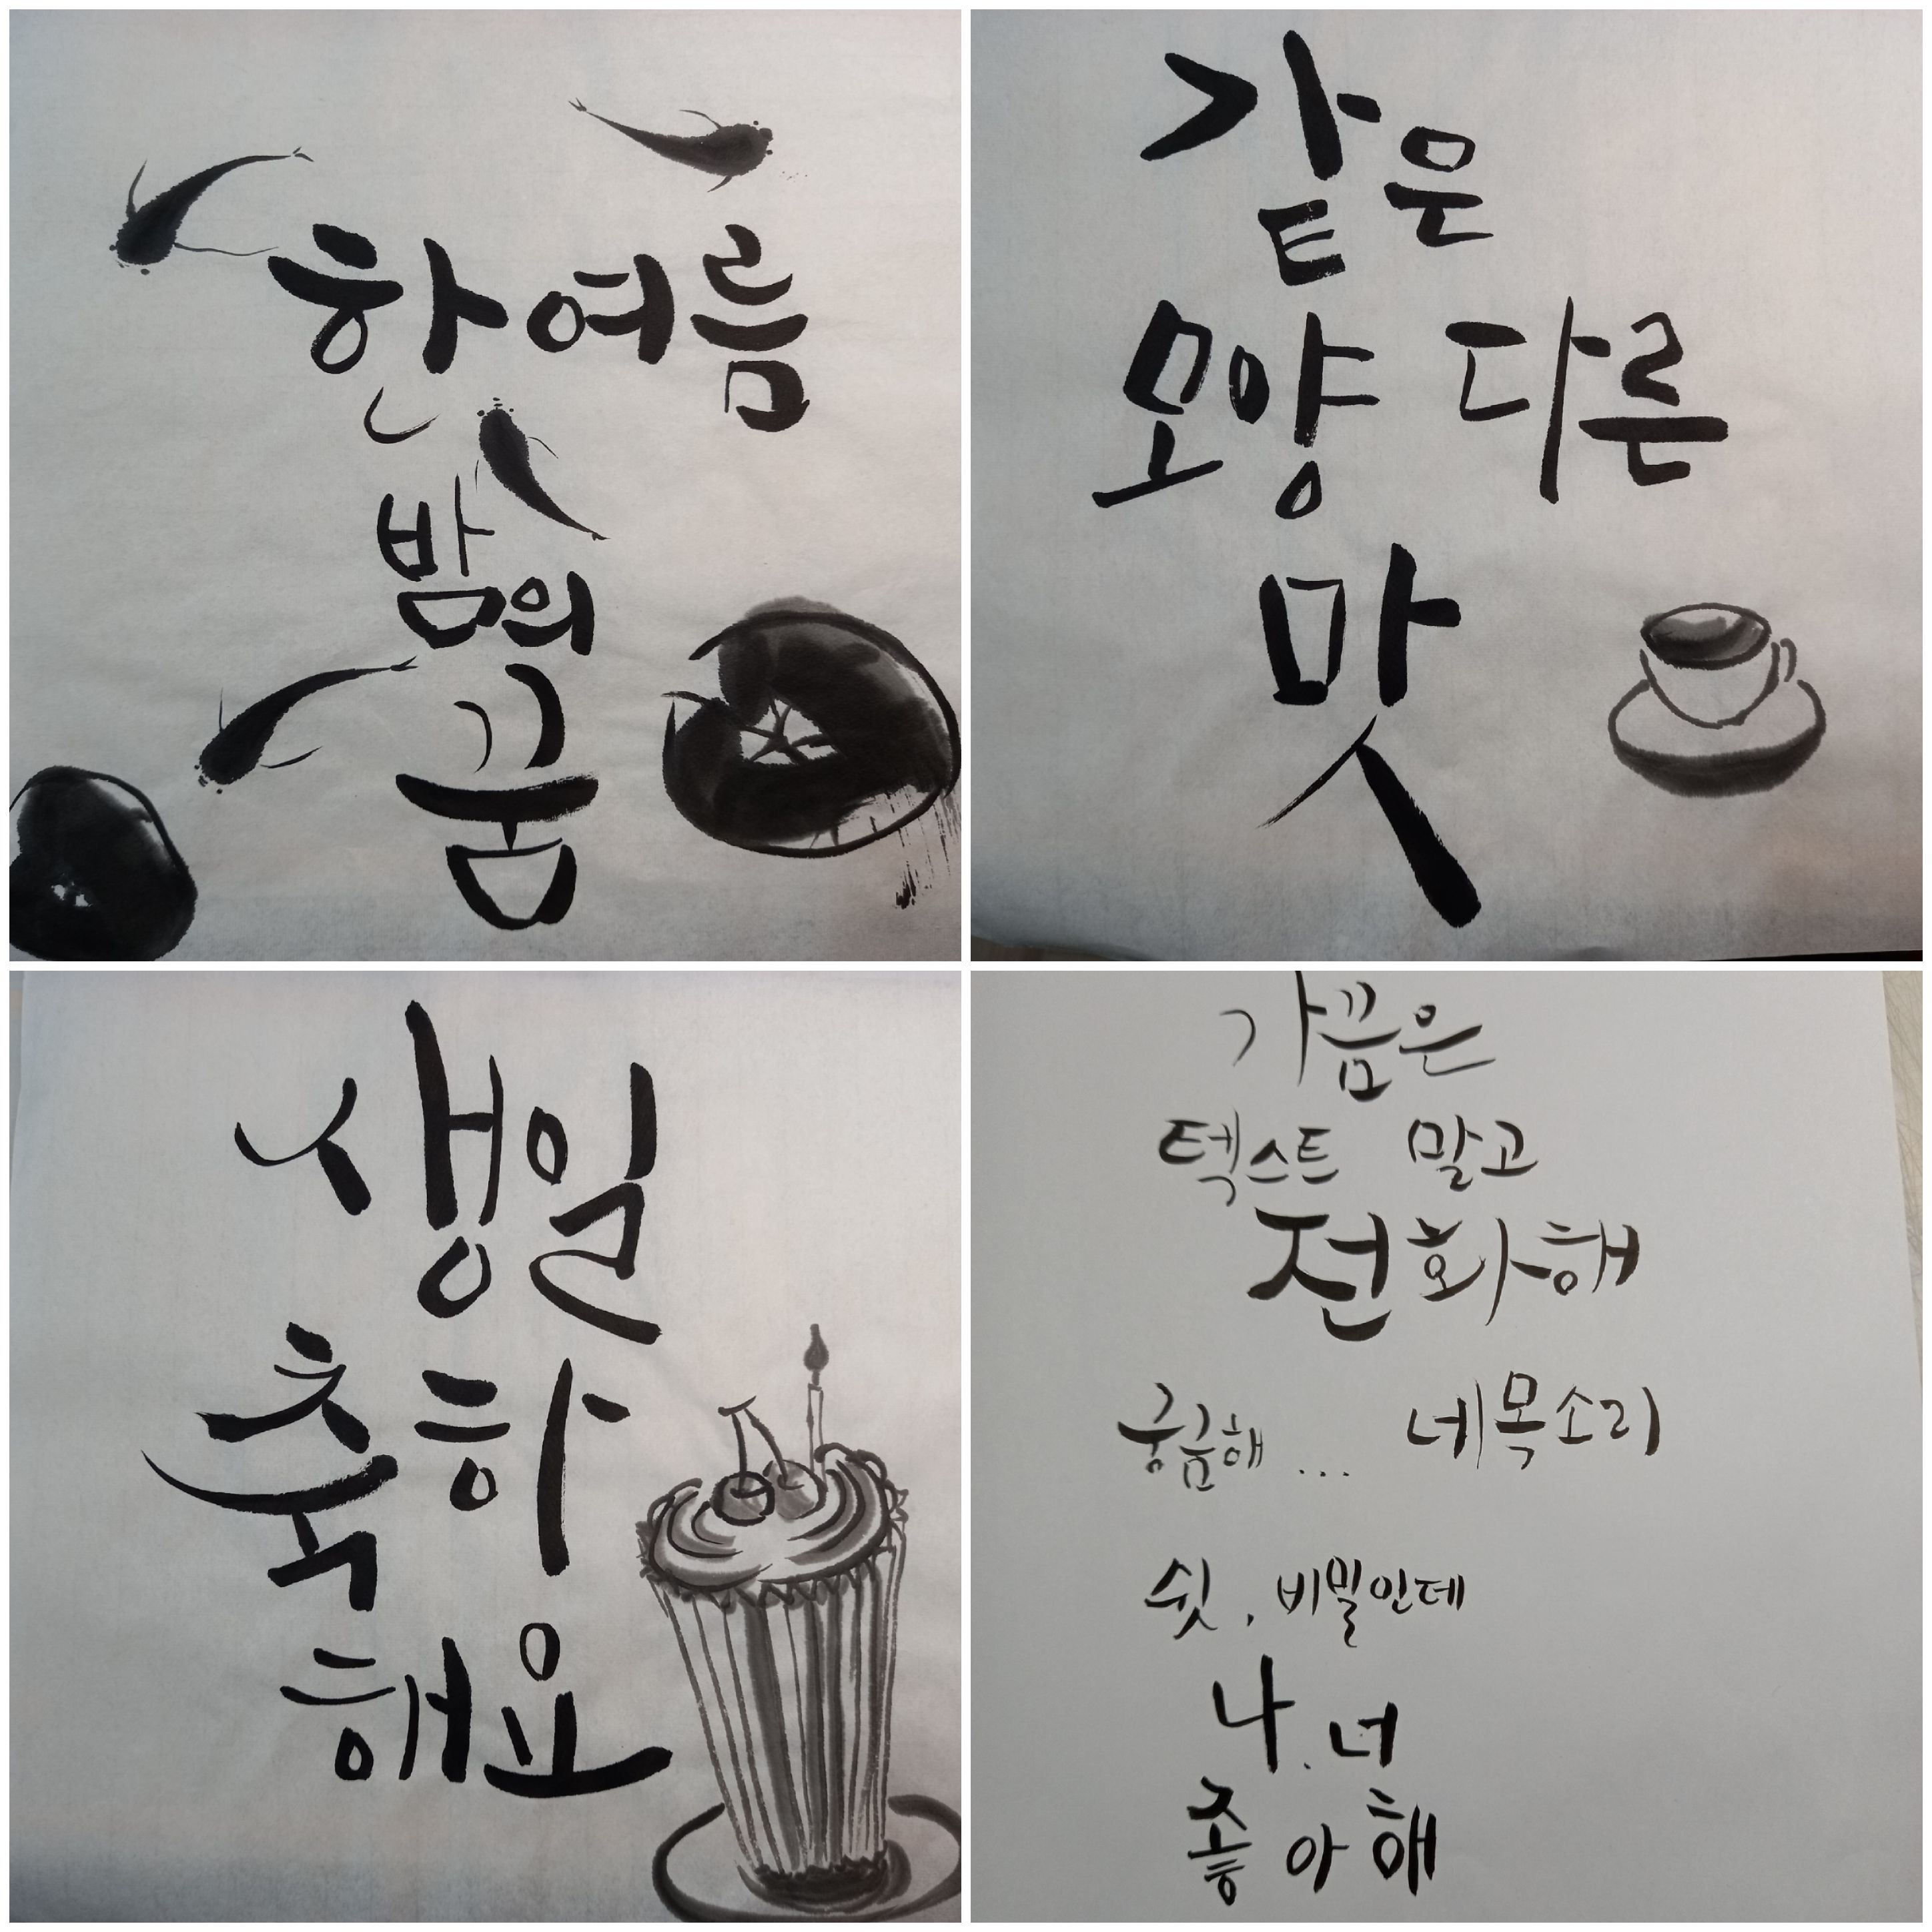 한여름
밤의
꿈
같은
모양 다른
맛
생일
축하
해요
가끔은
텍스트 말고
전화해
궁금해... 네목소리
쉿, 비밀인데
나, 너
좋아해